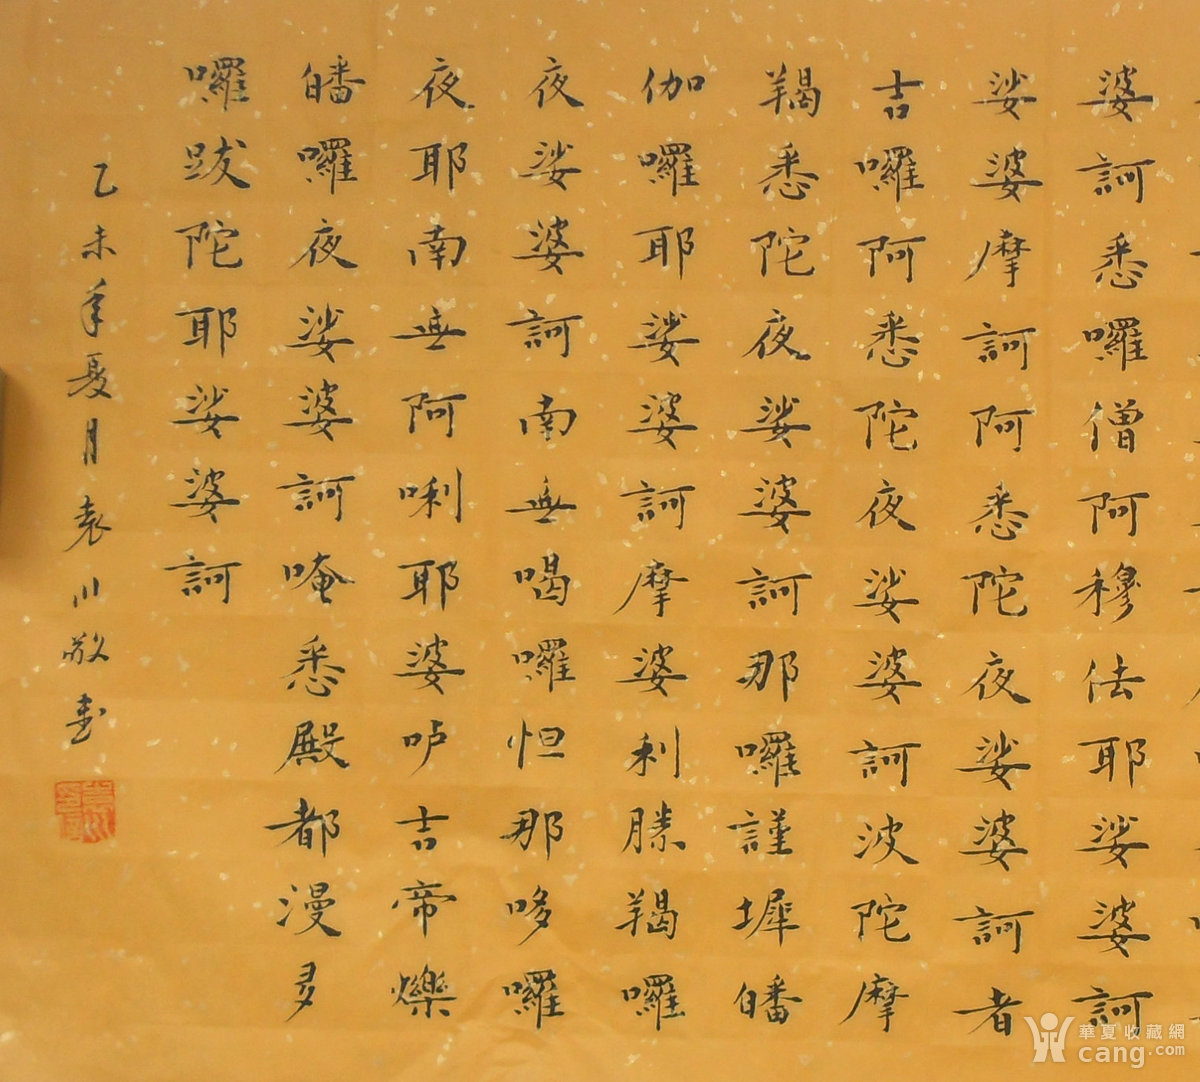 婆訶悉囉僧阿穆佉耶娑婆訶
娑婆摩訶阿悉陀夜娑婆訶者
吉囉阿悉陀夜娑婆訶波陀摩
羯悉陀夜娑婆訶那囉謹墀皤
伽囉耶娑婆訶摩婆利勝羯囉
夜娑婆訶南無喝囉怛那哆囉
夜耶南無阿唎耶婆𠰷吉帝爍
皤囉夜娑婆訶唵悉殿都漫多
囉跋陀耶娑婆訶
乙未年夏月袁川敬書
華夏收藏網
cang.com